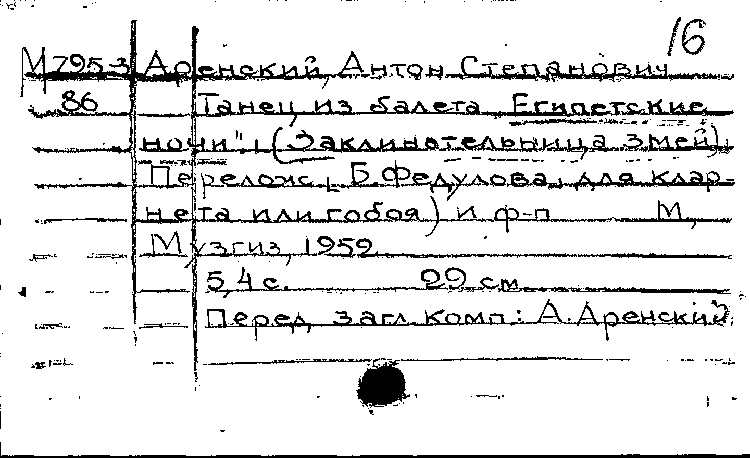 16
М 795-3 Аренский, Антон Степанович
86 Танец из балета Египетские
ночи", (Заклинательница змей),
Перелож. Б.Федулова, для клар-
нета или гобоя) и ф-п М,
Музгиз, 1959
5,4 с. 29 см
Перед загл. комп: А.Аренский